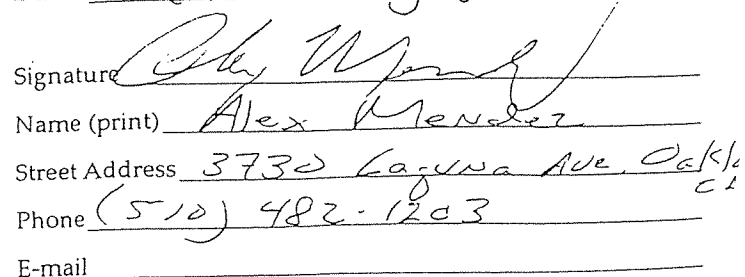 Signature Alex Mendez
Name (print) Alex Mendez
Street Address 3730 Laguna Ave. Oakla
CA
Phone (510) 482-1203
E-mail